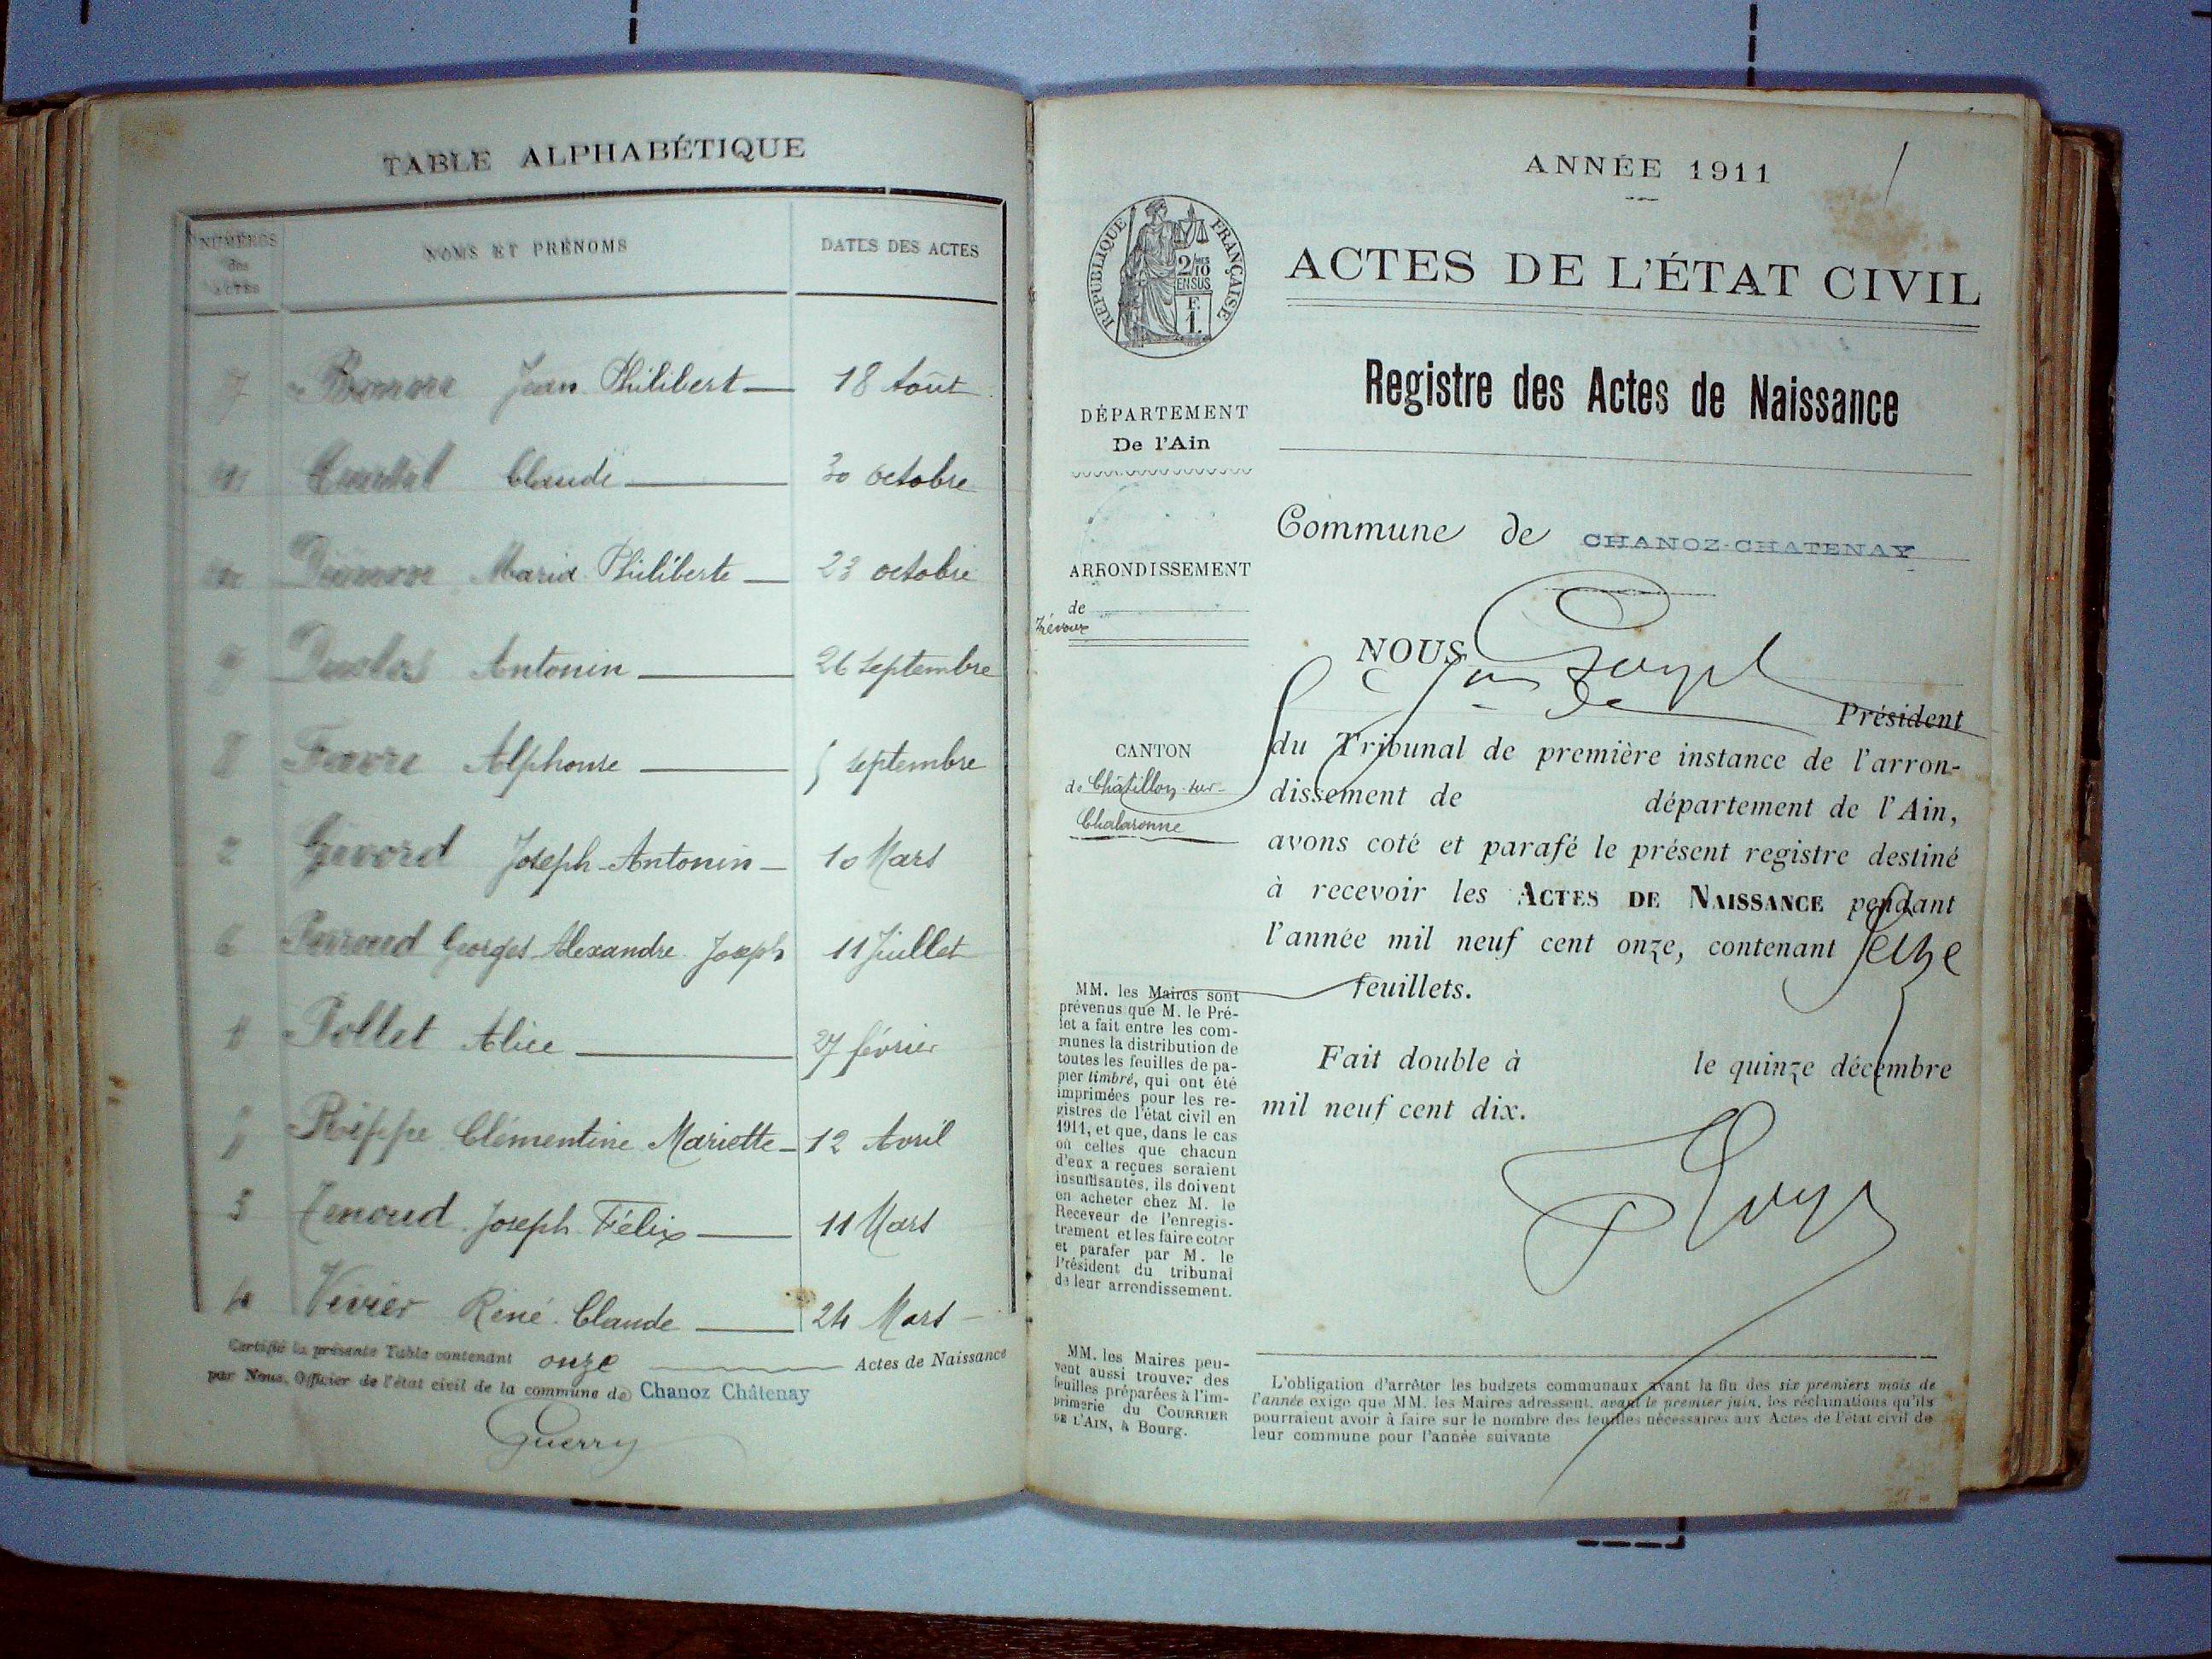 TABLE ALPHABÉTIQUE
NUMÉROS
des
ACTES
NOMS ET PRÉNOMS
DATES DES ACTES
7 Jean Philibert 18 Août
Claude 30 octobre
Maria Philiberte 23 octobre
Antonin 26 septembre
8 Favre Alphonse 5 septembre
2 Givord Joseph-Antonin 10 Mars
6 Perroud Georges Alexandre Joseph 11 Juillet
1 Pollet Alice 27 février
5 Rippe Clémentine Mariette 12 Avril
3 Tenoud Joseph Félix 11 Mars
4 Vivier René Claude 24 Mars
Certifié la présente Table contenant onze Actes de Naissance
par Nous, Officier de l'état civil de la commune de Chanoz Châtenay
Guerry
ANNÉE 1911
1
RÉPUBLIQUE FRANÇAISE
2/10
EN SUS
F.
1.
ACTES DE L'ÉTAT CIVIL
Registre des Actes de Naissance
DÉPARTEMENT
De l'Ain
Commune de CHANOZ-CHATENAY
ARRONDISSEMENT
de
Trévoux
NOUS
Président
du Tribunal de première instance de l'arron-
dissement de département de l'Ain,
avons coté et parafé le présent registre destiné
à recevoir les ACTES DE NAISSANCE pendant
l'année mil neuf cent onze, contenant seize
feuillets.
Fait double à le quinze décembre
mil neuf cent dix.
CANTON
de Châtillon-sur-
Chalaronne
MM. les Maires sont
prévenus que M. le Pré-
fet a fait entre les com-
munes la distribution de
toutes les feuilles de pa-
pier timbré, qui ont été
imprimées pour les re-
gistres de l'état civil en
1911, et que, dans le cas
où celles que chacun
d'eux a reçues seraient
insuffisantes, ils doivent
en acheter chez M. le
Receveur de l'enregis-
trement et les faire coter
et parafer par M. le
Président du tribunal
de leur arrondissement.
MM. les Maires peu-
vent aussi trouver des
feuilles préparées à l'im-
primerie du COURRIER
DE L'AIN, à Bourg.
L'obligation d'arrêter les budgets communaux avant la fin des six premiers mois de
l'année exige que MM. les Maires adressent, avant le premier juin, les réclamations qu'ils
pourraient avoir à faire sur le nombre des feuilles nécessaires aux Actes de l'état civil de
leur commune pour l'année suivante